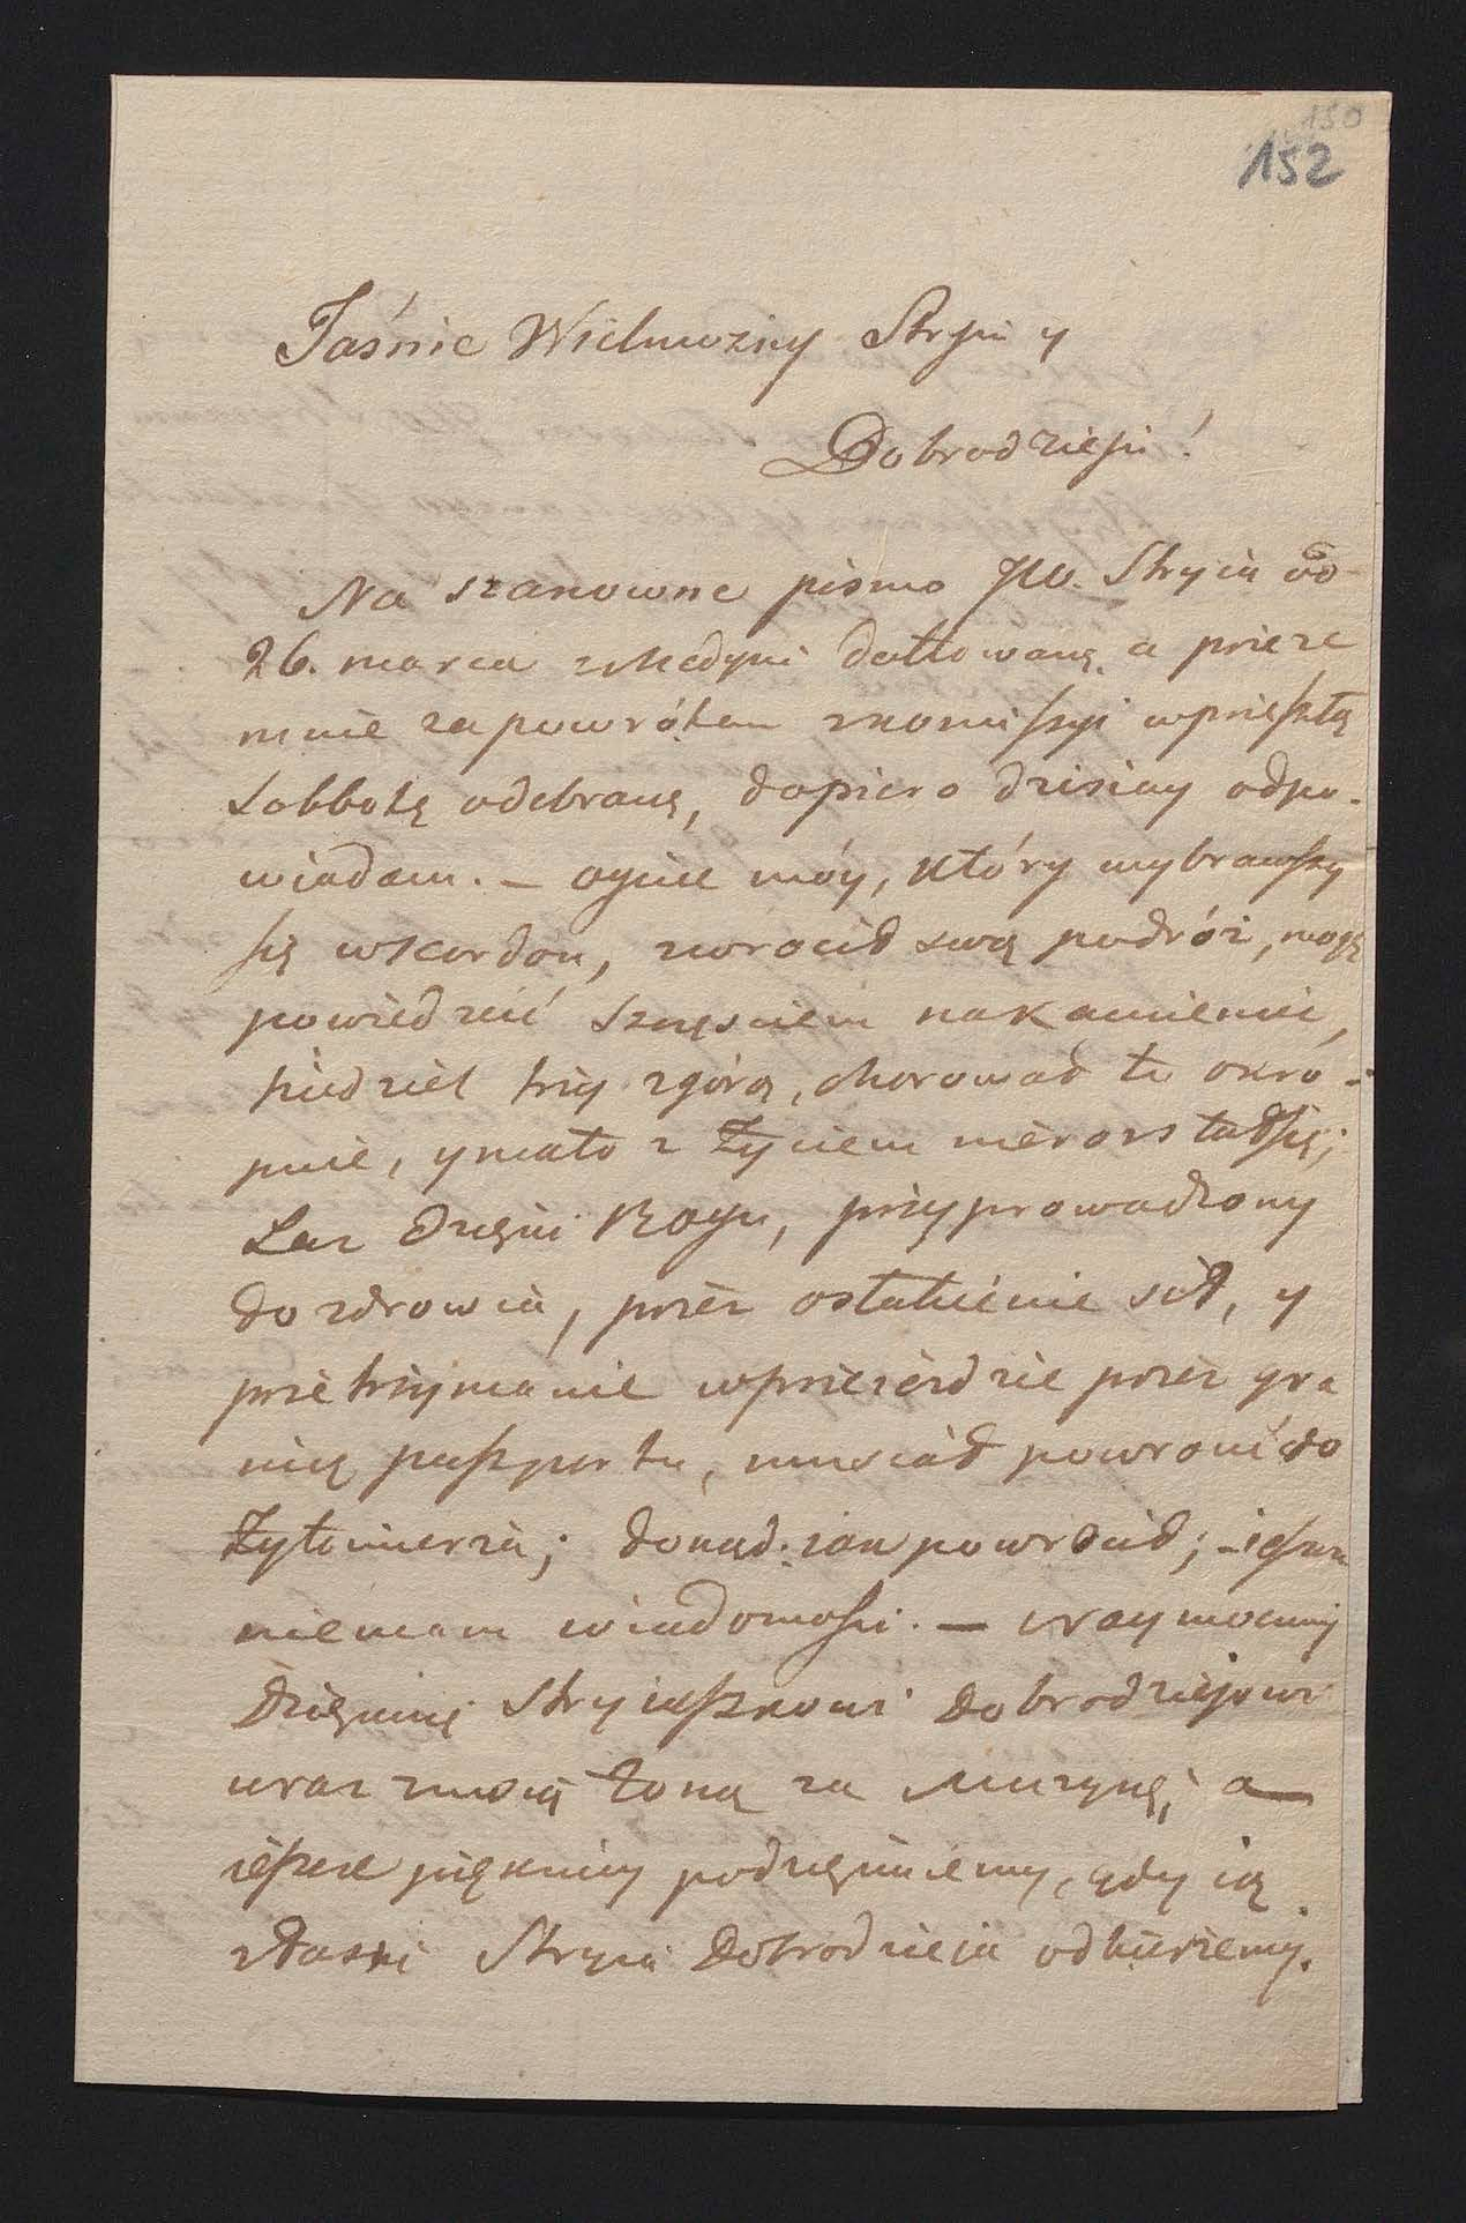 150
152
Jaśnie Wielmożny Stryiu y
Dobrodzieju!
Na szanowne pismo JW. Stryia do
26. marca z Medyni dattowane a przeze
mnie za powrótem z komissyi w przeszłą
Sobbotę odebrane, dopiero dzisiay odpo-
wiadam. – oyciec móy, który wybrawszy
się w Kordon, zwrocił swą podróż, mogę
powiedzieć Szczęsciem na kamieniec,
siedział trzy zgórą, chorował tu okro-
pnie, y mało z życiem nierozstał się;
Lecz dzięki Bogu, przyprowadzony
do zdrowia, przez osłabienie sił, y
przetrzymanie w przeieździe przez gra
nicę paszportu, musiał powrocić do
Żytomierza; dokąd iak powrócił; – ieszcze
niemam wiadomości. – Naymocniey
Dziękuię Stryiaszkowi Dobrodziejowi
wraz z moią żoną za Muzykę, a
ieszcze piękniey podziękuiemy, gdy ią
z łaski Stryia Dobrodzieja odbierzemy.